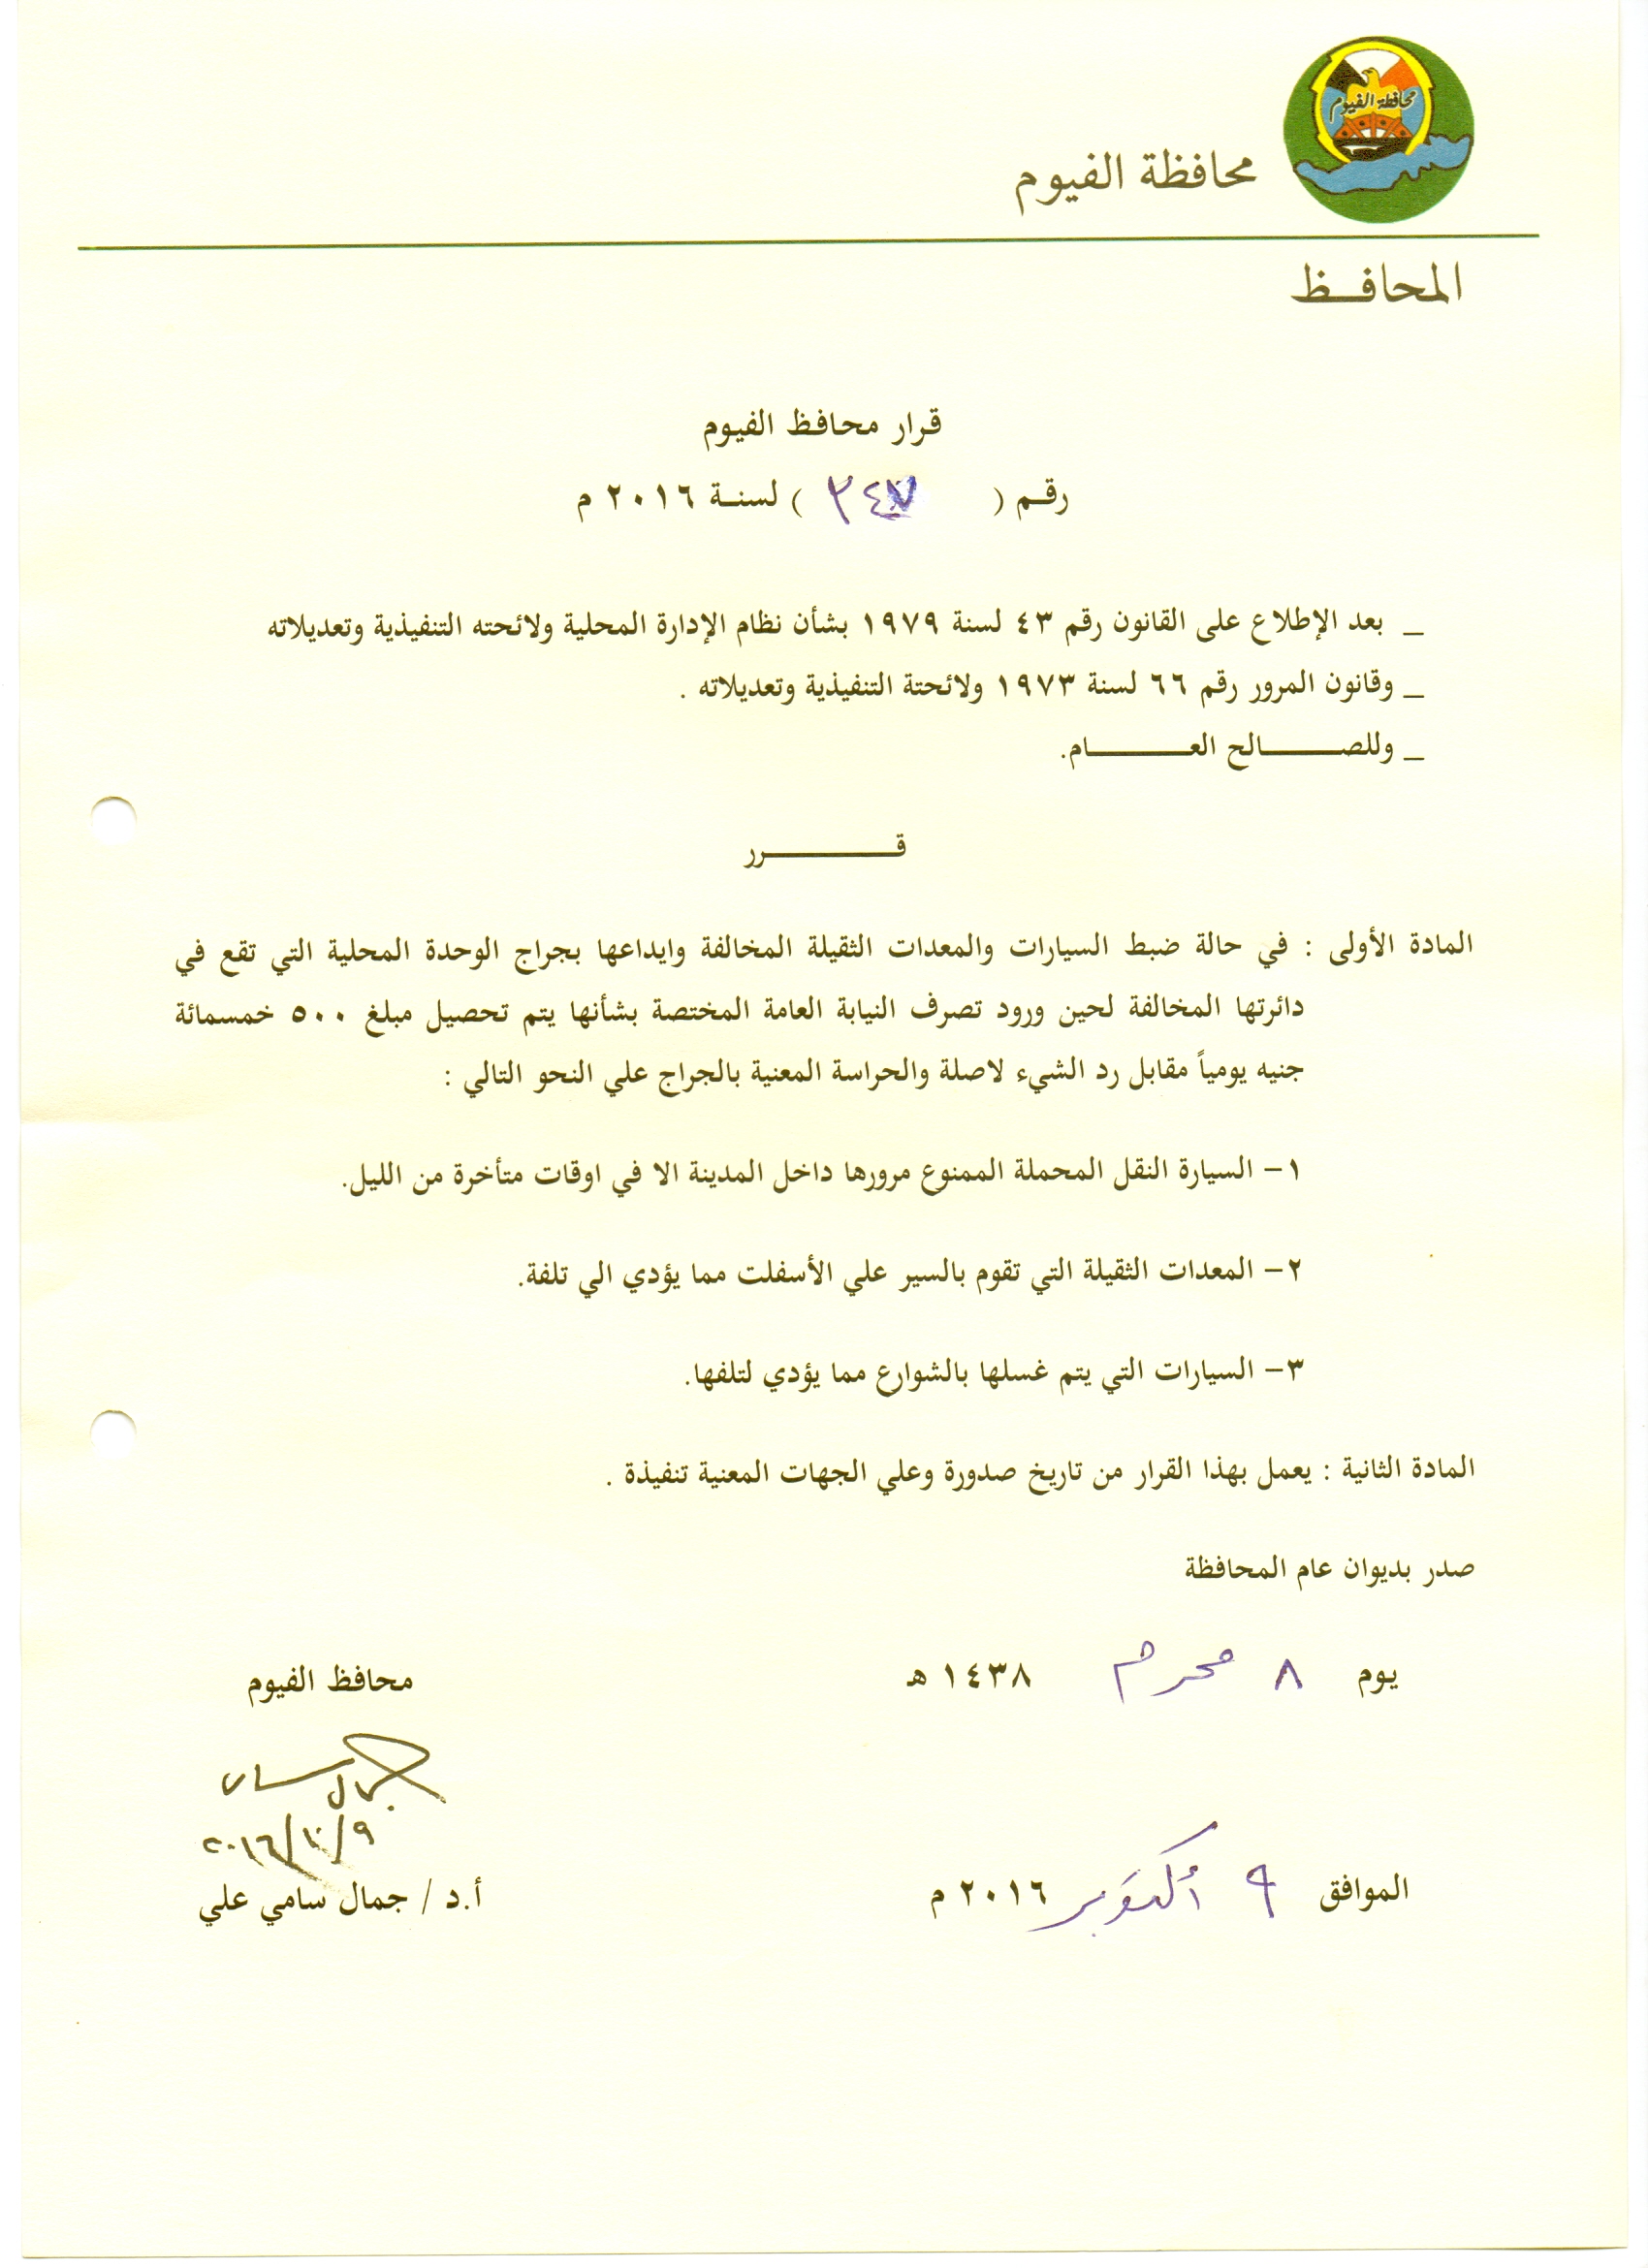 محافظة الفيوم
محافظة الفيوم
المحافــظ
قرار محافظ الفيوم
رقم ( ٣٤٧ ) لسنة ٢٠١٦ م
_ بعد الإطلاع على القانون رقم ٤٣ لسنة ١٩٧٩ بشأن نظام الإدارة المحلية ولائحته التنفيذية وتعديلاته
_ وقانون المرور رقم ٦٦ لسنة ١٩٧٣ ولائحتة التنفيذية وتعديلاته .
_ وللصـــــــالح العـــــــــام.
قـــــــــــرر
المادة الأولى : في حالة ضبط السيارات والمعدات الثقيلة المخالفة وايداعها بجراج الوحدة المحلية التي تقع في
دائرتها المخالفة لحين ورود تصرف النيابة العامة المختصة بشأنها يتم تحصيل مبلغ ٥٠٠ خمسمائة
جنيه يومياً مقابل رد الشيء لاصلة والحراسة المعنية بالجراج علي النحو التالي :
١– السيارة النقل المحملة الممنوع مرورها داخل المدينة الا في اوقات متأخرة من الليل.
٢– المعدات الثقيلة التي تقوم بالسير علي الأسفلت مما يؤدي الي تلفة.
٣– السيارات التي يتم غسلها بالشوارع مما يؤدي لتلفها.
المادة الثانية : يعمل بهذا القرار من تاريخ صدورة وعلي الجهات المعنية تنفيذة .
صدر بديوان عام المحافظة
يوم ٨ محرم ١٤٣٨ هـ
محافظ الفيوم
جمال سامي
٢٠١٦/١٠/٩
الموافق ٩ أكتوبر ٢٠١٦ م
أ.د / جمال سامي علي